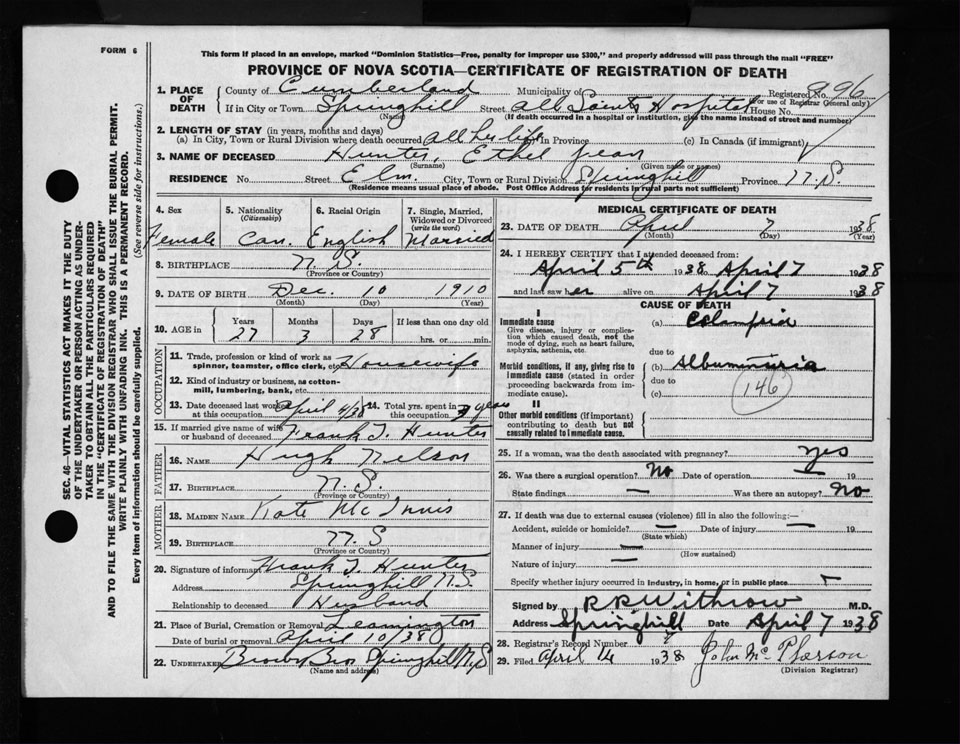 FORM 6
This form if placed in an envelope, marked "Dominion Statistics—Free, penalty for improper use $300," and properly addressed will pass through the mail "FREE"
PROVINCE OF NOVA SCOTIA—CERTIFICATE OF REGISTRATION OF DEATH
1. PLACE OF DEATH
County of Cumberland Municipality of Registered No. 896
(For use of Registrar General only)
If in City or Town Springhill Street All Saints Hospital House No.
(Name) (If death occurred in a hospital or institution, give the name instead of street and number)
2. LENGTH OF STAY (in years, months and days)
(a) In City, Town or Rural Division where death occurred all her life In Province (c) In Canada (if immigrant)
3. NAME OF DECEASED Hunter, Ethel Jean
(Surname) (Given name or names)
RESIDENCE No. Street Elm. City, Town or Rural Division Springhill Province N.S.
(Residence means usual place of abode. Post Office Address for residents in rural parts not sufficient)
4. Sex
Female
5. Nationality
(Citizenship)
Can.
6. Racial Origin
English
7. Single, Married, Widowed or Divorced
(write the word)
Married
8. BIRTHPLACE N.S.
(Province or Country)
9. DATE OF BIRTH Dec. 10 1910
(Month) (Day) (Year)
10. AGE in
Years Months Days If less than one day old
27 3 28 hrs. or min.
OCCUPATION
11. Trade, profession or kind of work as
spinner, teamster, office clerk, etc. Housewife
12. Kind of industry or business, as cotton-
mill, lumbering, bank, etc.
13. Date deceased last worked
at this occupation April 4/38
14. Total yrs. spent in
this occupation 7 years
15. If married give name of wife
or husband of deceased Frank J. Hunter
FATHER
16. NAME Hugh Nelson
17. BIRTHPLACE N.S.
(Province or Country)
MOTHER
18. MAIDEN NAME Kate McInnis
19. BIRTHPLACE N.S
(Province or Country)
20. Signature of informant Frank J. Hunter
Address Springhill N.S.
Relationship to deceased Husband
21. Place of Burial, Cremation or Removal Leamington
Date of burial or removal April 10/38
22. UNDERTAKER Bros Springhill N.S
(Name and address)
MEDICAL CERTIFICATE OF DEATH
23. DATE OF DEATH April 7 1938
(Month) (Day) (Year)
24. I HEREBY CERTIFY that I attended deceased from:
April 5th 1938 to April 7 1938
and last saw her alive on April 7 1938
CAUSE OF DEATH
I
Immediate cause
Give disease, injury or complica-
tion which caused death, not the
mode of dying, such as heart failure,
asphyxia, asthenia, etc.
(a)
due to
Morbid conditions, if any, giving rise to
immediate cause (stated in order
proceeding backwards from im-
mediate cause).
(b) Albuminuria
due to
(c)
146
II
Other morbid conditions (if important)
contributing to death but not
causally related to immediate cause.
25. If a woman, was the death associated with pregnancy? yes
26. Was there a surgical operation? No Date of operation 19
State findings — Was there an autopsy? No
27. If death was due to external causes (violence) fill in also the following:—
Accident, suicide or homicide? — Date of injury — 19
(State which)
Manner of injury —
(How sustained)
Nature of injury —
Specify whether injury occurred in industry, in home, or in public place
Signed by R.R. Withrow M.D.
Address Springhill Date April 7 1938
28. Registrar's Record Number
29. Filed April 14 1938 John McPherson
(Division Registrar)
SEC. 46—VITAL STATISTICS ACT MAKES IT THE DUTY
OF THE UNDERTAKER OR PERSON ACTING AS UNDER-
TAKER TO OBTAIN ALL THE PARTICULARS REQUIRED
IN THE "CERTIFICATE OF REGISTRATION OF DEATH"
AND TO FILE THE SAME WITH THE DIVISION REGISTRAR WHO SHALL ISSUE THE BURIAL PERMIT.
WRITE PLAINLY WITH UNFADING INK. THIS IS A PERMANENT RECORD.
Every item of information should be carefully supplied. (See reverse side for instructions.)